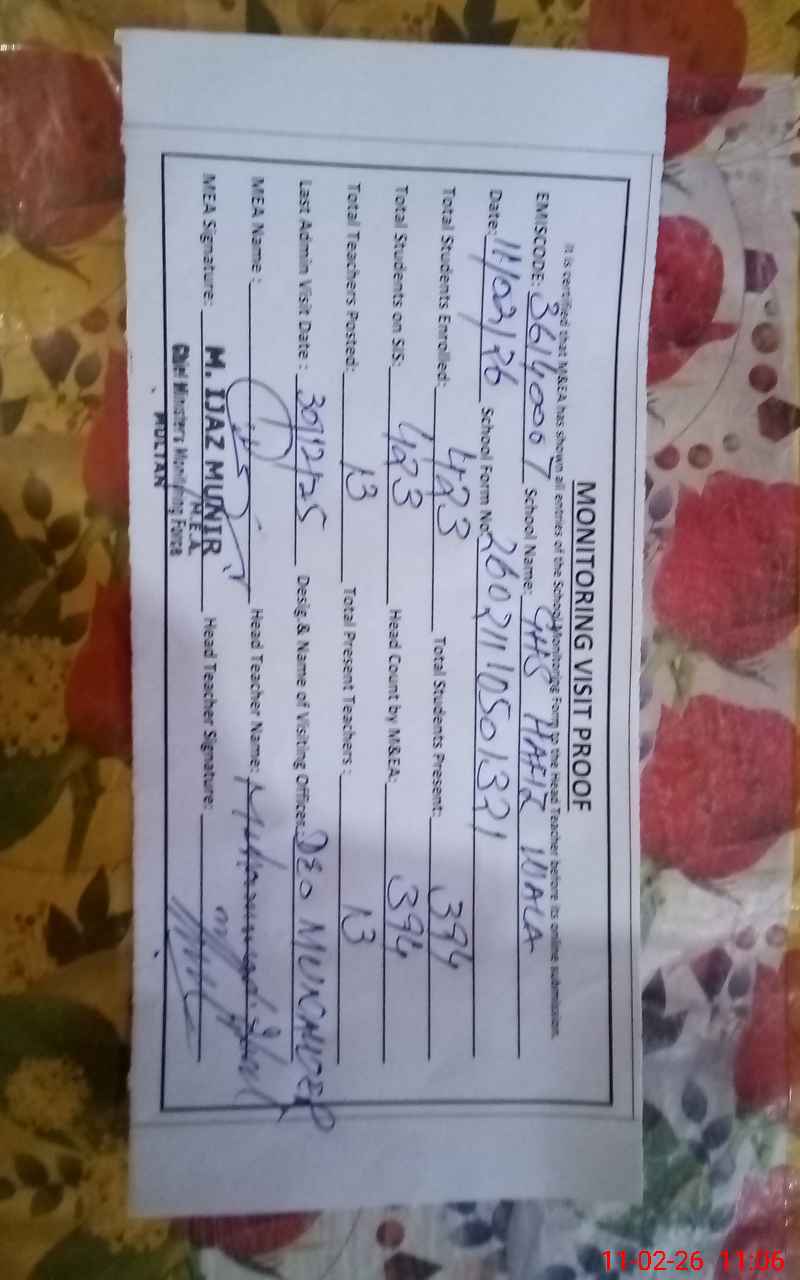 MONITORING VISIT PROOF
It is certified that M&EA has shown all entries of the School Monitoring Form to the Head Teacher before its online submission.
EMISCODE: 36140007 School Name: GHS HAFIZ WALA
Date: 11/02/26 School Form No. 26021110501321
Total Students Enrolled: 423 Total Students Present: 394
Total Students on SIS: 423 Head Count by M&EA: 394
Total Teachers Posted: 13 Total Present Teachers : 13
Last Admin Visit Date : 30/12/25 Desig.& Name of Visiting Officer: DEO
MEA Name : Head Teacher Name: Muhammad
MEA Signature: M. IJAZ MUNIR Head Teacher Signature:
M.E.A.
Chief Minister's Monitoring Force
MULTAN
11-02-26 11:06